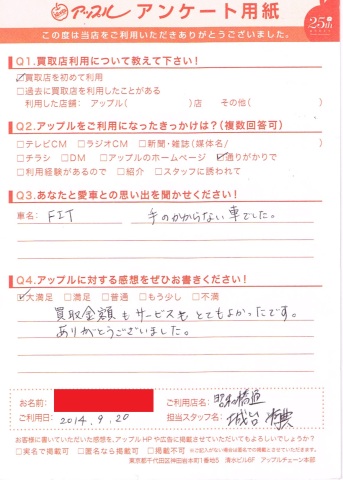 アップル アンケート用紙
25th
この度は当店をご利用いただきありがとうございました。
Q1.買取店利用について教えて下さい!
☑買取店を初めて利用
□過去に買取店を利用したことがある
利用した店舗: アップル( )店 その他( )
Q2.アップルをご利用になったきっかけは?(複数回答可)
□テレビCM □ラジオCM □新聞・雑誌(媒体名/ )
□チラシ □DM □アップルのホームページ ☑通りがかりで
□利用経験があるので □紹介 □スタッフに誘われて
Q3.あなたと愛車との思い出を聞かせください!
車名: FIT 手のかからない車でした。
Q4.アップルに対する感想をぜひお書きください!
☑大満足 □満足 □普通 □もう少し □不満
買取金額もサービスもとてもよかったです。
ありがとうございました。
お名前: ご利用店名: 昭和橋通
ご利用日: 2014.9.20 担当スタッフ名:
お客様に書いていただいた感想を、アップルHPや広告に掲載させていただいてもよろしいでしょうか?
□実名で掲載可 □匿名なら掲載可 □掲載不可 ※ご記入がない場合は掲載可とさせていただきます。
東京都千代田区神田岩本町1番地5 清水ビル6F アップルチェーン本部